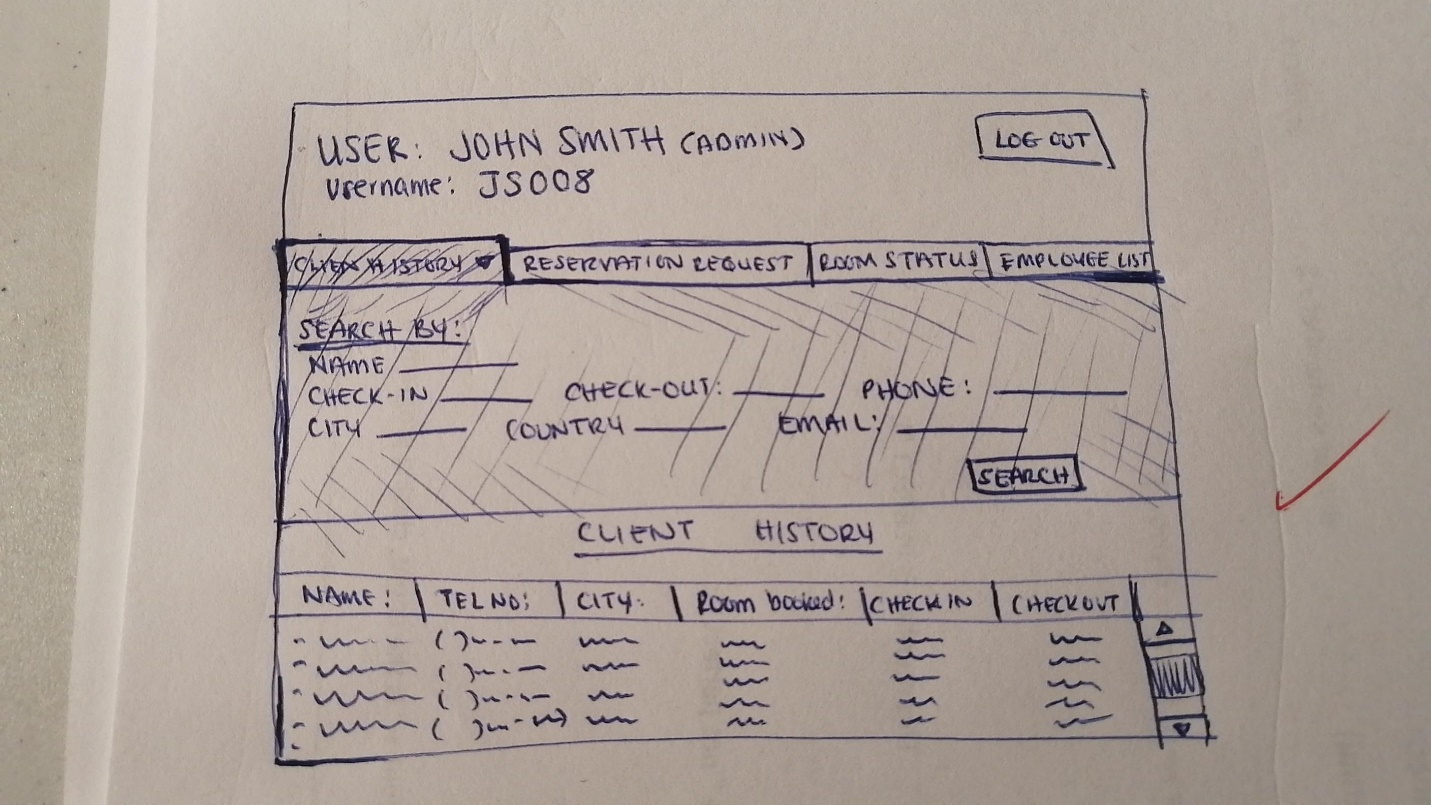 USER: JOHN SMITH (ADMIN)
LOG OUT
Username: JS008
CLIEN HISTORY
RESERVATION REQUEST
ROOM STATUS
EMPLOYEE LIST
SEARCH BY:
NAME
CHECK-IN CHECK-OUT: PHONE:
CITY COUNTRY EMAIL:
SEARCH
CLIENT HISTORY
NAME: TEL NO: CITY: Room booked: CHECK IN CHECKOUT